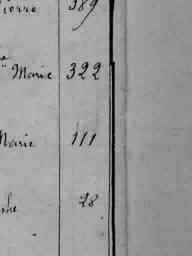 Pierre 389
Marie 322
Marie 111
78